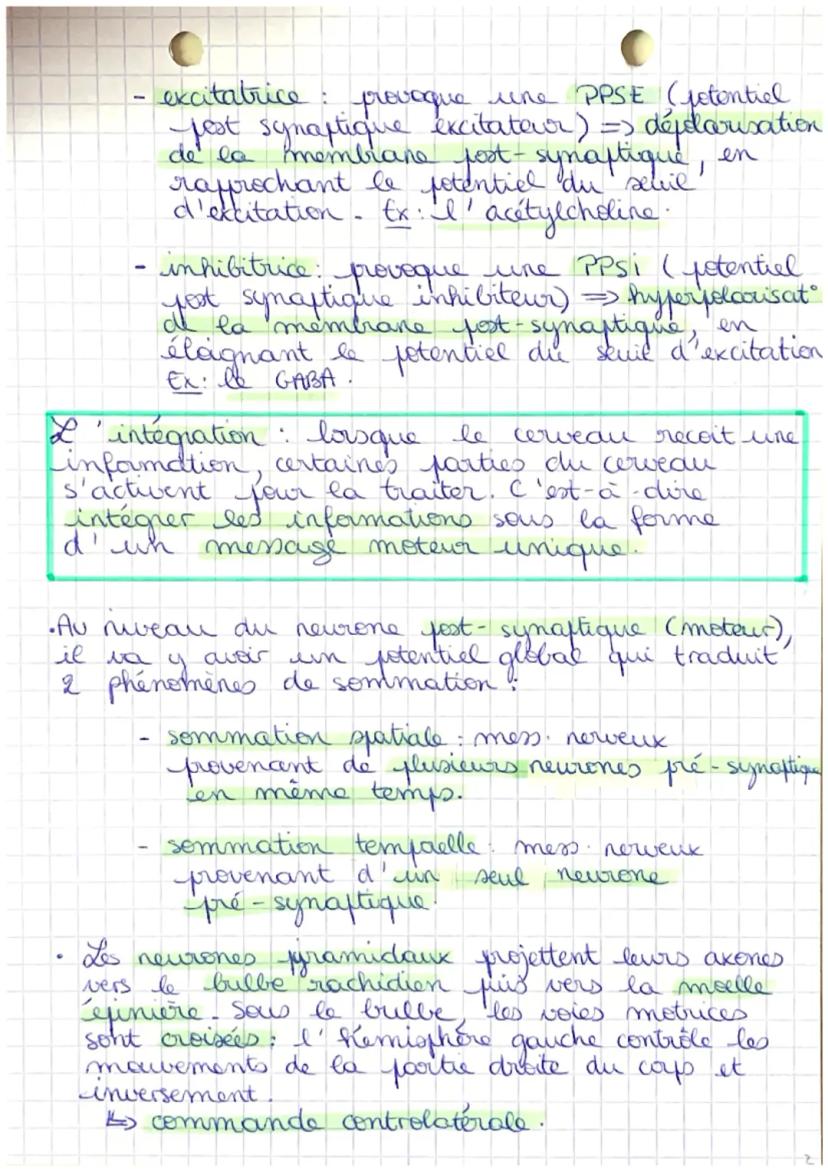 - excitatrice : provoque une PPSE (potentiel
post synaptique excitateur) => dépolarisation
de la membrane post-synaptique, en
rapprochant le potentiel du seuil
d'excitation. Ex : l'acétylcholine.
- inhibitrice : provoque une PPSi (potentiel
post synaptique inhibiteur) => hyperpolarisat°
de la membrane post-synaptique, en
éloignant le potentiel du seuil d'excitation
Ex : le GABA.
L'intégration : lorsque le cerveau reçoit une
information, certaines parties du cerveau
s'activent pour la traiter. C'est-à-dire
intégrer les informations sous la forme
d'un message moteur unique.
•Au niveau du neurone post-synaptique (moteur),
il va y avoir un potentiel global qui traduit
2 phénomènes de sommation :
- sommation spatiale : mess. nerveux
provenant de plusieurs neurones pré-synaptique
en même temps.
- sommation temporelle : mess. nerveux
provenant d'un seul neurone
pré-synaptique.
• Les neurones pyramidaux projettent leurs axones
vers le bulbe rachidien puis vers la moelle
épinière. Sous le bulbe, les voies motrices
sont croisées : l'hémisphère gauche contrôle les
mouvements de la partie droite du corps et
inversement.
↳ commande controlatérale.
2